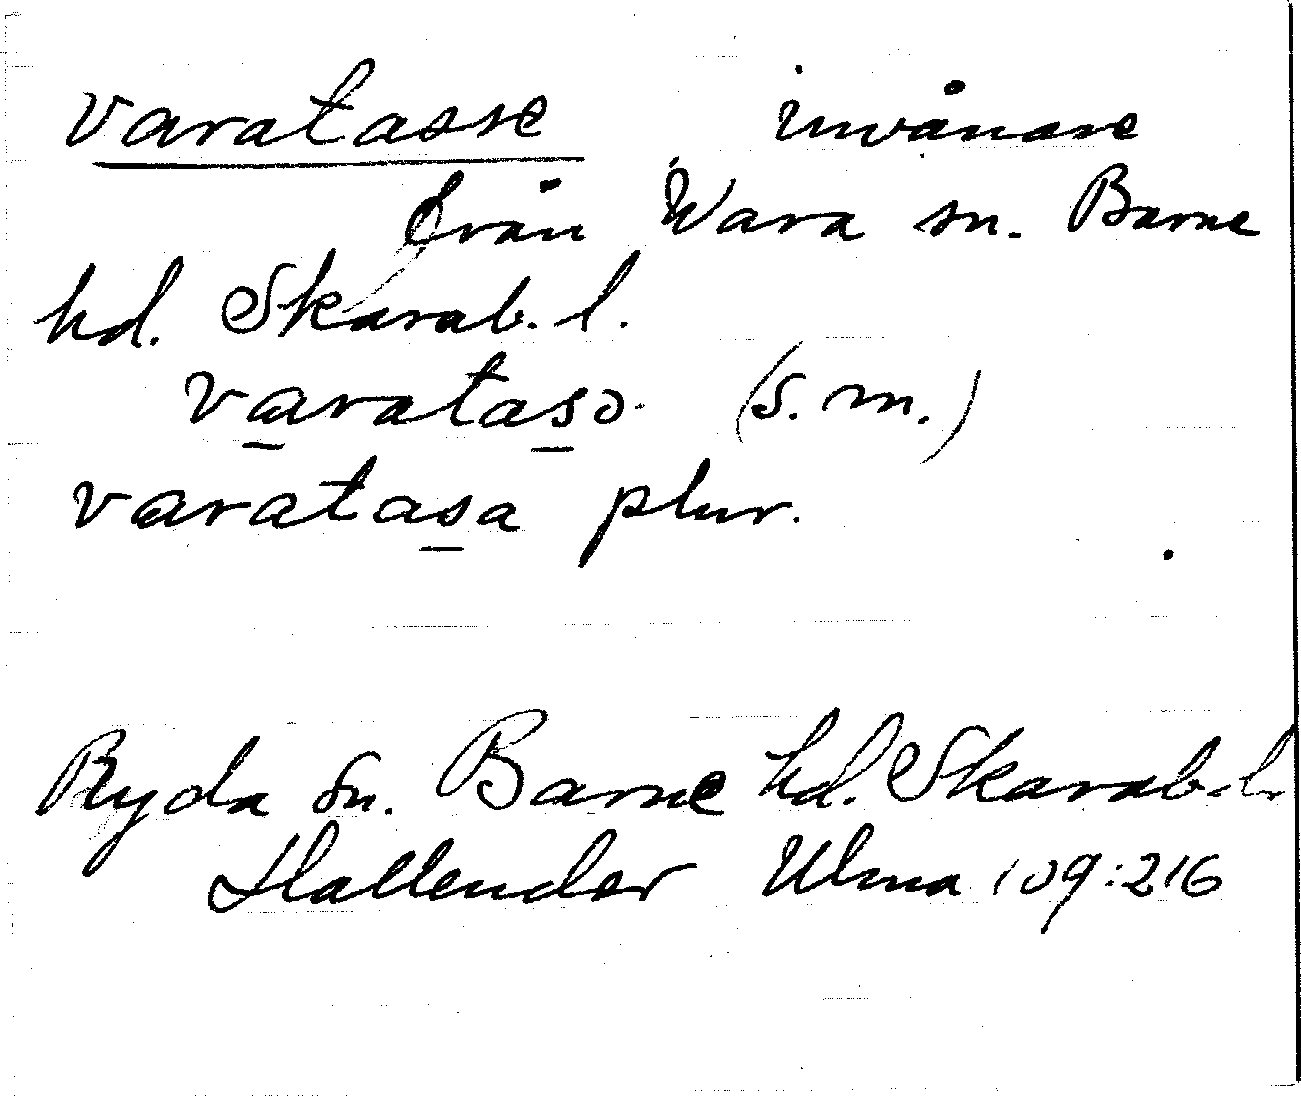 varatasse invånare
från Wara sn. Barne
hd. Skarab. l.
varataso (s. m.)
varatasa plur.
Ryda sn. Barne hd. Skarab. l.
Hallender Ulma 109:216